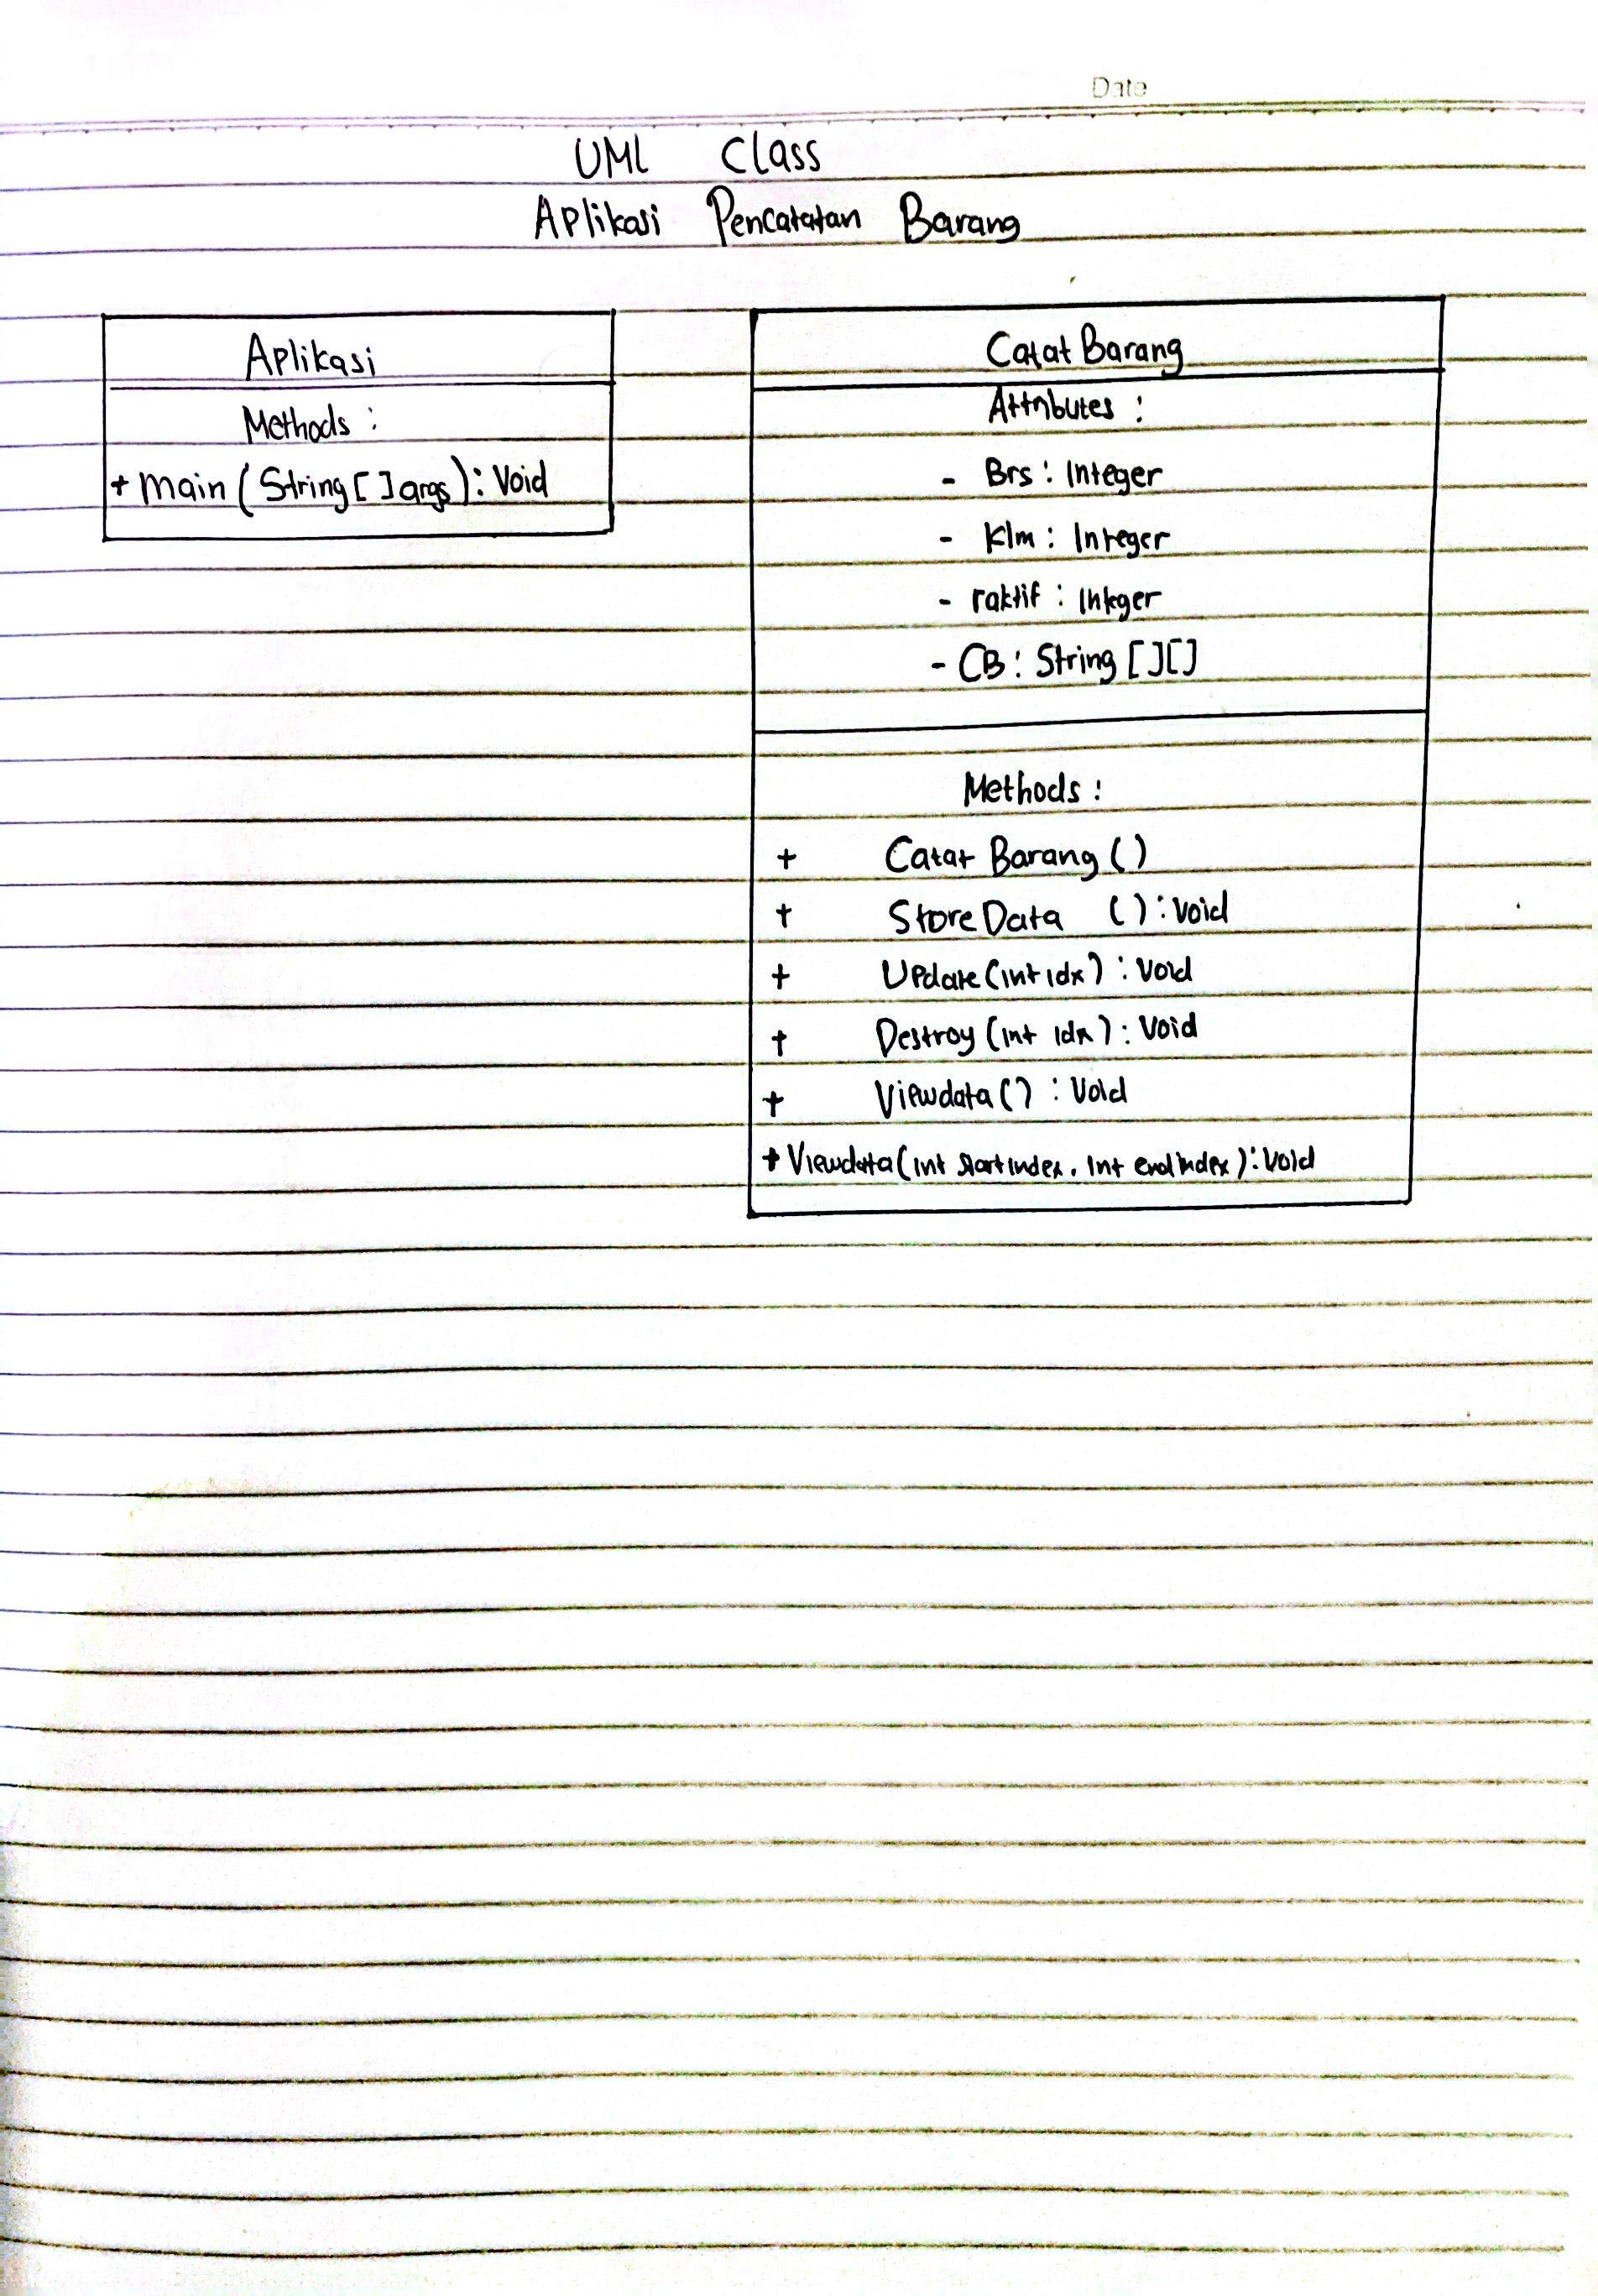 Date
UML Class
Aplikasi Pencatatan Barang
Aplikasi
Methods :
+ main (String [ ] args) : Void
Catat Barang
Attributes :
- Brs : Integer
- Klm : Integer
- raktif : Integer
- CB : String [ ] [ ]
Methods :
+ Catat Barang ( )
+ Store Data ( ) : Void
+ Update (int idx) : Void
+ Destroy (int idx) : Void
+ Viewdata ( ) : Void
+ Viewdata (int startindex, int endindex) : Void